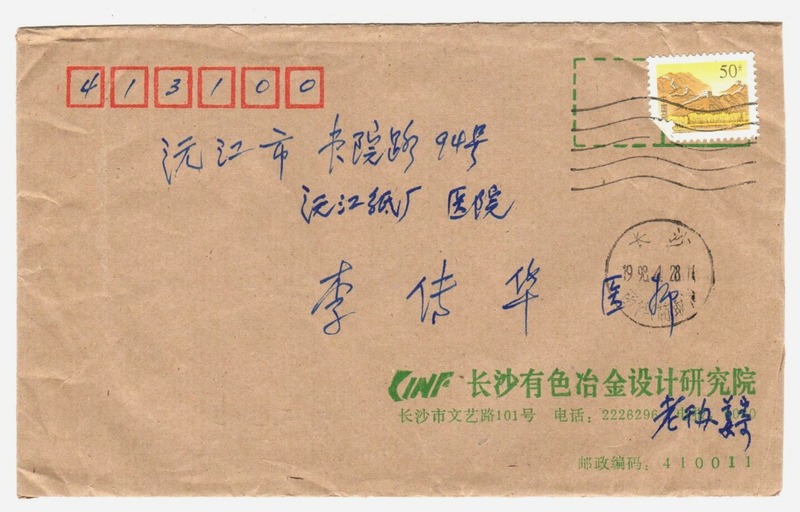 413100
50分
沅江市 书院路 94号
沅江纸厂 医院
长沙
1998.4.28.11
李传华 医师
CINF 长沙有色冶金设计研究院
长沙市文艺路101号 电话：2226296
老干办
邮政编码：410011